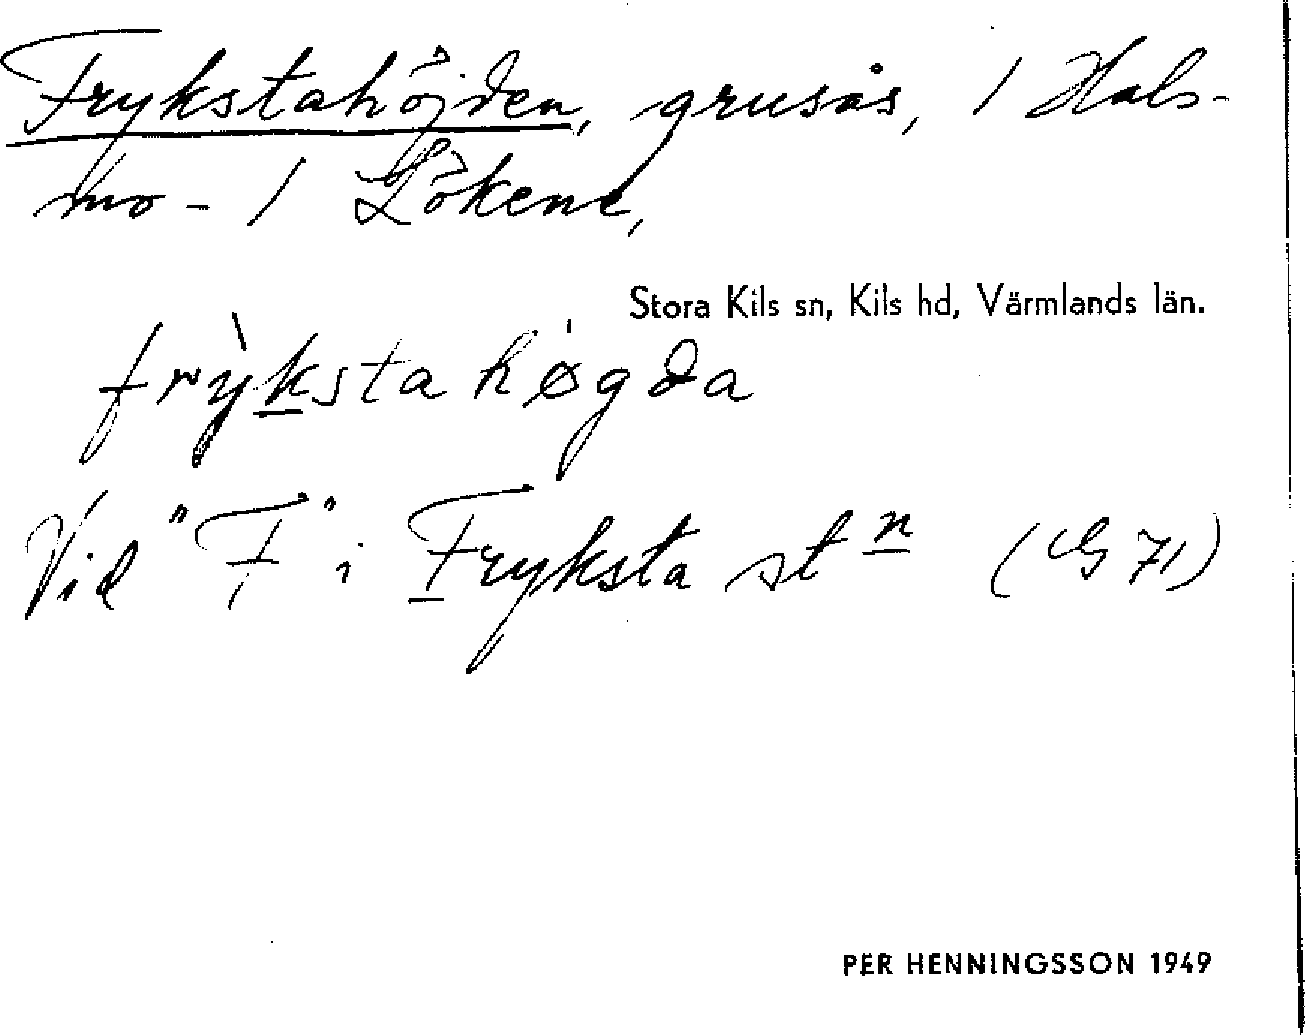 Frykstahöjden, grusås, 1 Hals-
mo - 1 Lökene,
Stora Kils sn, Kils hd, Värmlands län.
frỳkstahøgda
Vid "F" i Fryksta stn (G 71)
PER HENNINGSSON 1949